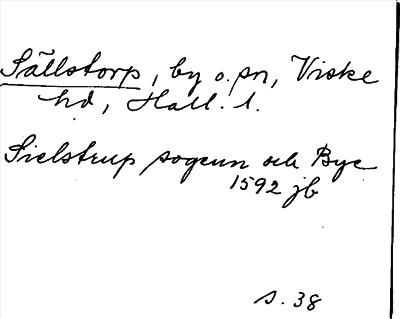 Sällstorp, by o. sn, Viske
hd, Hall. l.
Sielstrup sogenn och Bye
1592 jb
s. 38